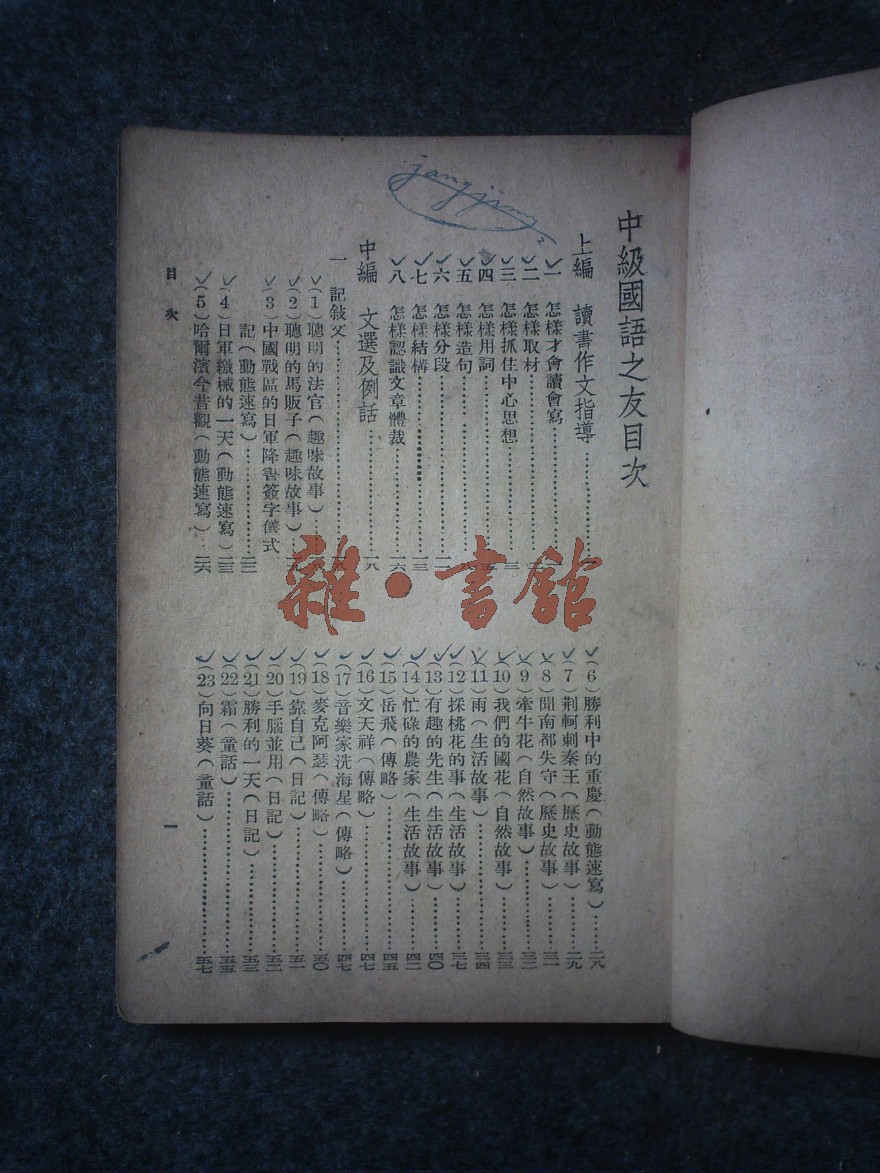 jangjsm
中級國語之友目次
上編 讀書作文指導
一 怎樣才會讀會寫
二 怎樣取材
三 怎樣抓住中心思想
四 怎樣用詞
五 怎樣造句
六 怎樣分段
七 怎樣結構 一三
八 怎樣認識文章體裁 一六
中編 文選及例話 一八
一 記敍文
(1)聰明的法官(趣味故事)
(2)聰明的馬販子(趣味故事)
(3)中國戰區的日軍降書簽字儀式
記(動態速寫) 二二
(4)日軍繳械的一天(動態速寫) 二三
(5)哈爾濱今昔觀(動態速寫) 二六
(6)勝利中的重慶(動態速寫) 二八
(7)荆軻刺秦王(歷史故事) 二九
(8)聞南都失守(歷史故事) 三一
(9)牽牛花(自然故事) 三二
(10)我們的國花(自然故事) 三三
(11)雨(生活故事) 三四
(12)採桃花的事(生活故事) 三七
(13)有趣的先生(生活故事) 四〇
(14)忙碌的農家(生活故事) 四二
(15)岳飛(傳略) 四五
(16)文天祥(傳略) 四七
(17)音樂家冼海星(傳略) 四七
(18)麥克阿瑟(傳略) 五〇
(19)靠自己(日記) 五一
(20)手腦並用(日記) 五二
(21)勝利的一天(日記) 五三
(22)霜(童話) 五五
(23)向日葵(童話) 五七
目次
一
雜·書館